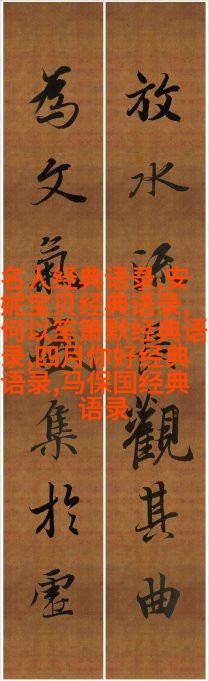 放水流觀其曲
為文氣集於虛
名人经典语录,安
妮宝贝经典语录,
何以笙箫默经典语
录,四月你好经典
语录,马保国经典
语录